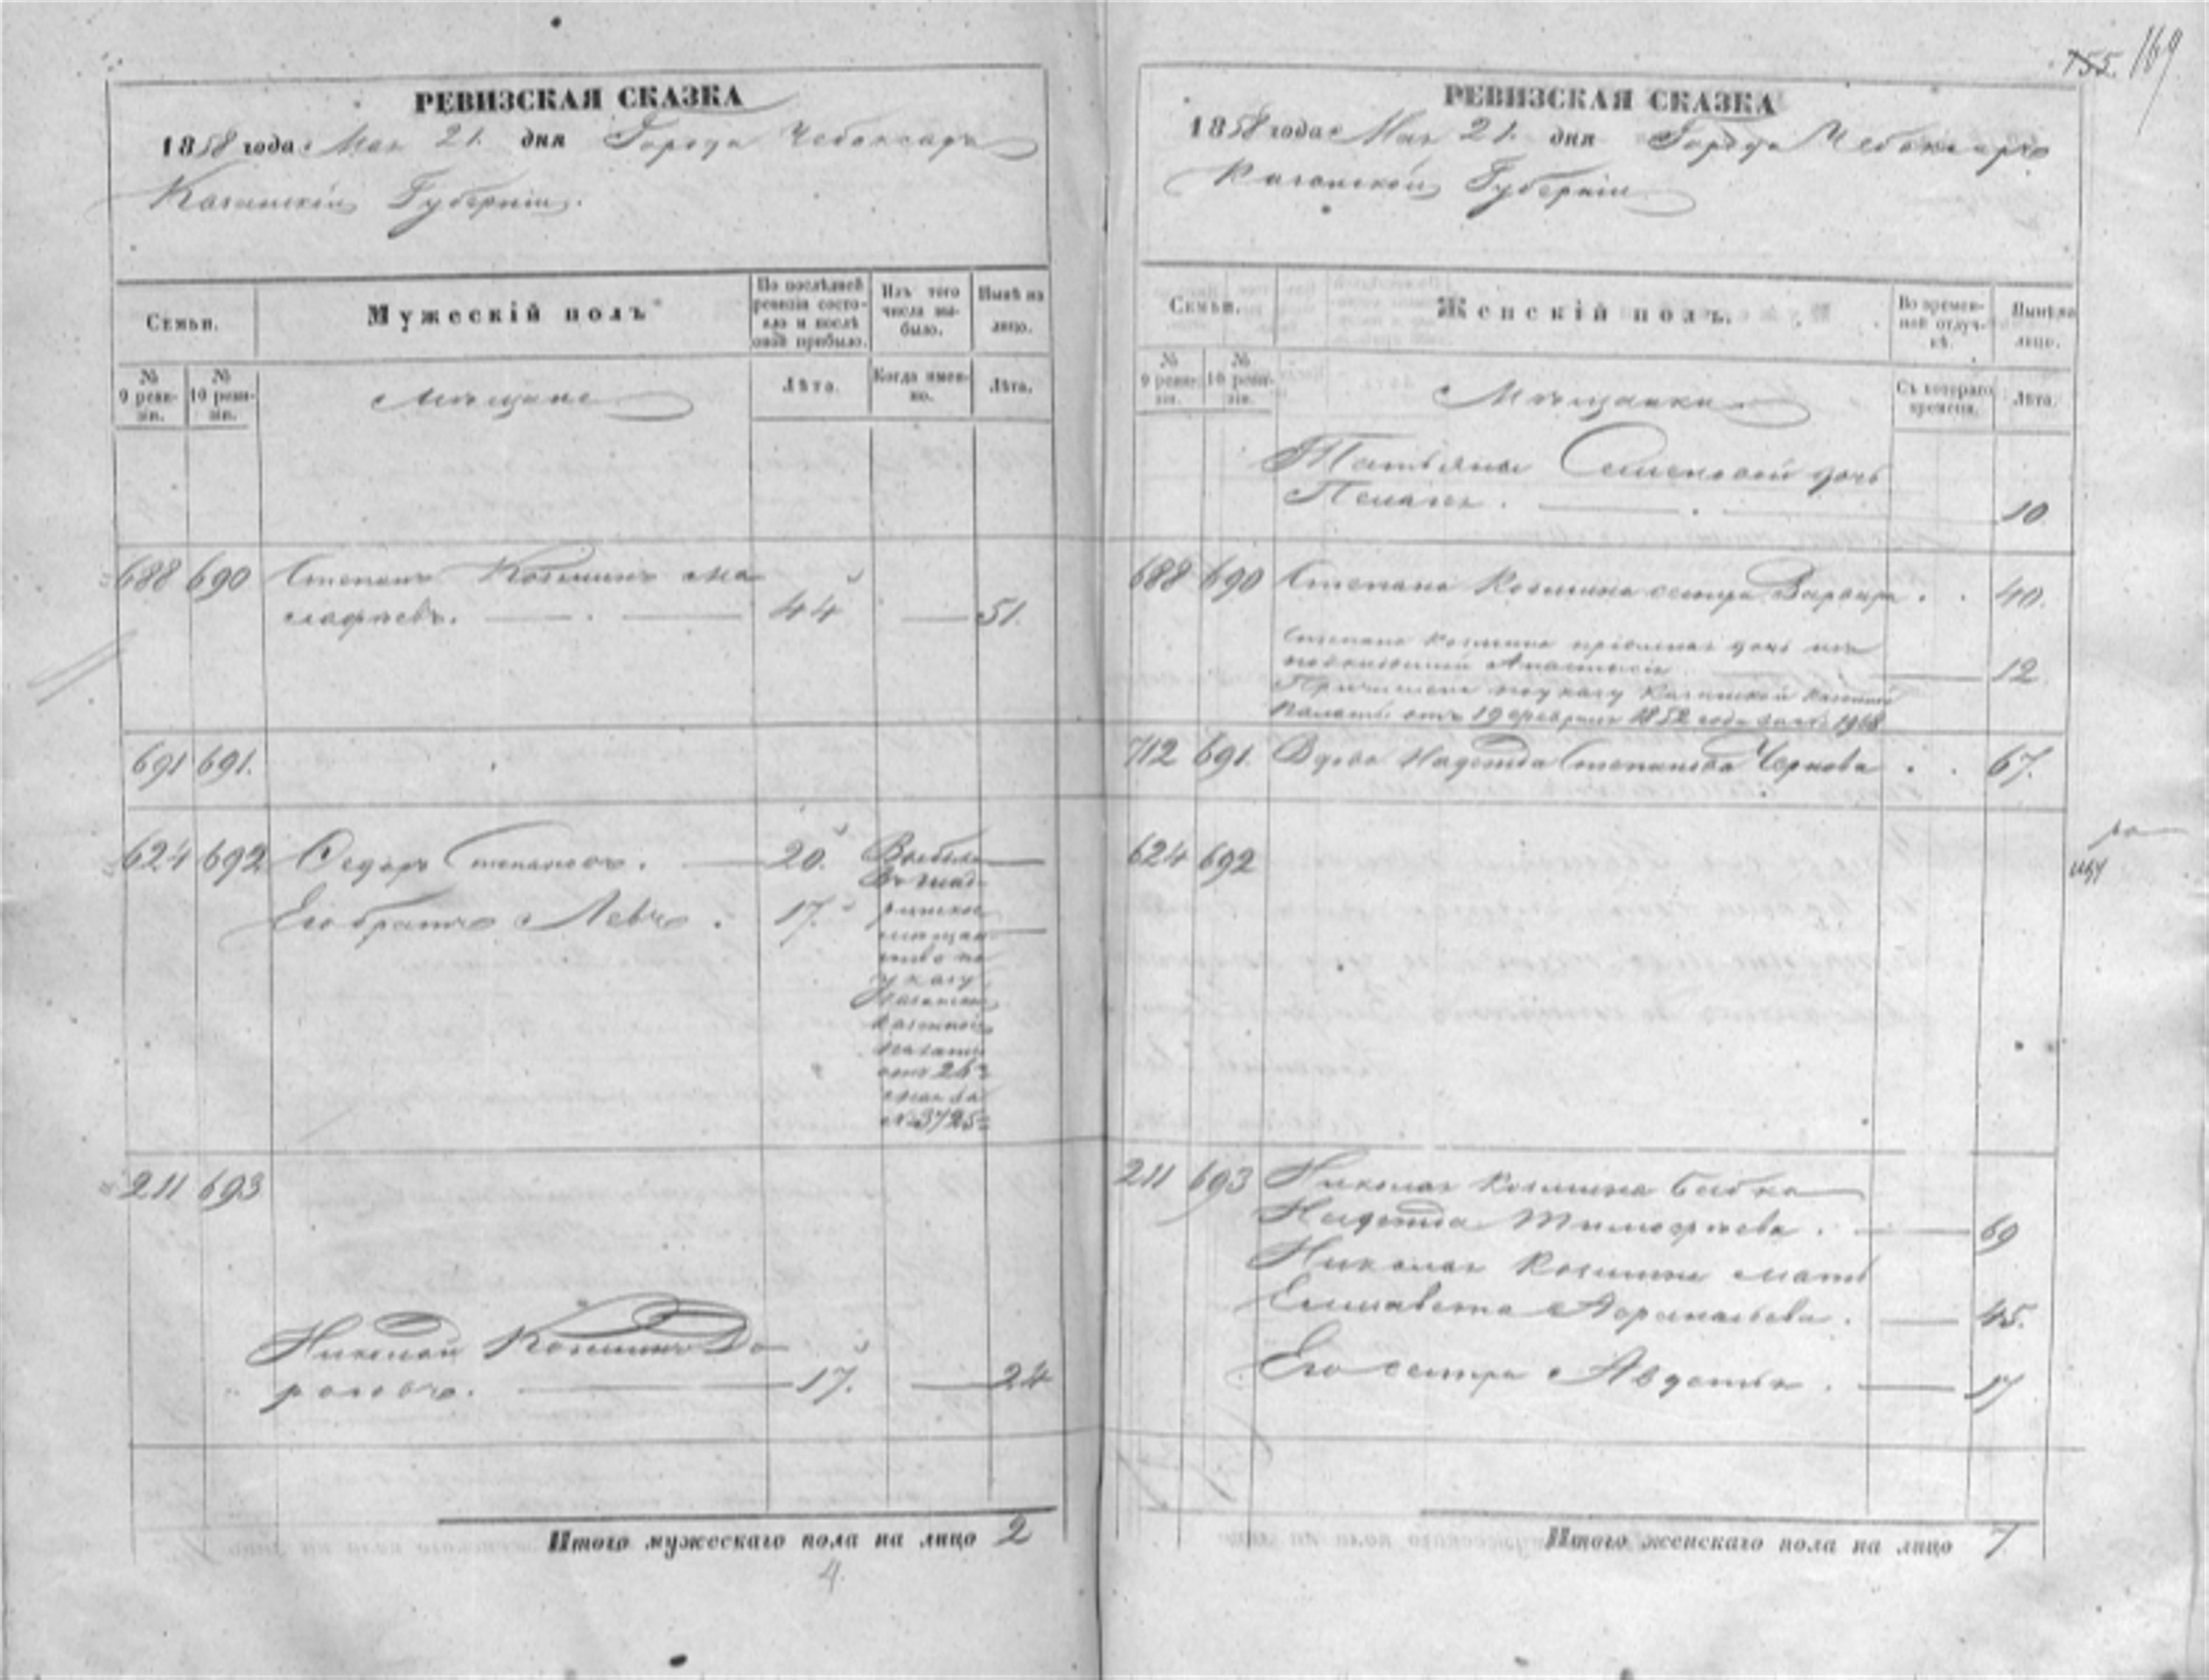 755. 169
РЕВИЗСКАЯ СКАЗКА
1858 года Мая 21. дня Города Чебоксаръ
Казанской Губерніи.
Семьи.
Мужескій полъ
По послѣдней ревизіи состояло и послѣ оной прибыло.
Изъ того числа выбыло.
Нынѣ на лицо.
№ 9 ревизіи.
№ 10 ревизіи.
Мѣщане
Лѣта.
Когда именно.
Лѣта.
688 690 Степанъ Козминъ
44 51.
691 691.
624 692 Федоръ Степановъ. 20. Выбыли
въ
Его братъ Левъ. 17.
мѣщан
ство по
указу
Казанской
Казенной
палаты
отъ 26
мая за
№ 3725
211 693
Николай Козминъ До
роговъ. 17. 24
Итого мужескаго пола на лицо 2
4.
РЕВИЗСКАЯ СКАЗКА
1858 года Мая 21. дня Города Чебоксаръ
Казанской Губерніи
Семьи.
Женскій полъ.
Во временной отлучкѣ.
Нынѣ на лицо.
№ 9 ревизіи.
№ 10 ревизіи.
Мѣщанки
Съ котораго времени.
Лѣта.
Татьяны Семеновой дочь
Пелагея. 10
688 690 Степана Козмина сестра Варвара. 40.
Степана Козмина пріемная дочь изъ
подкидышей Анастасія 12
Причислена по указу Казанской Казенной
Палаты отъ 19 февраля 1852 года за № 1968
712 691. Вдова Надежда Степанова Чернова 67.
624 692
211 693 Николая Козмина бабка
Надежда Тимофѣева. 69
Николая Козмина мать
Елизавета Афанасьева. 45.
Его сестра Авдотья. 17
Итого женскаго пола на лицо 7